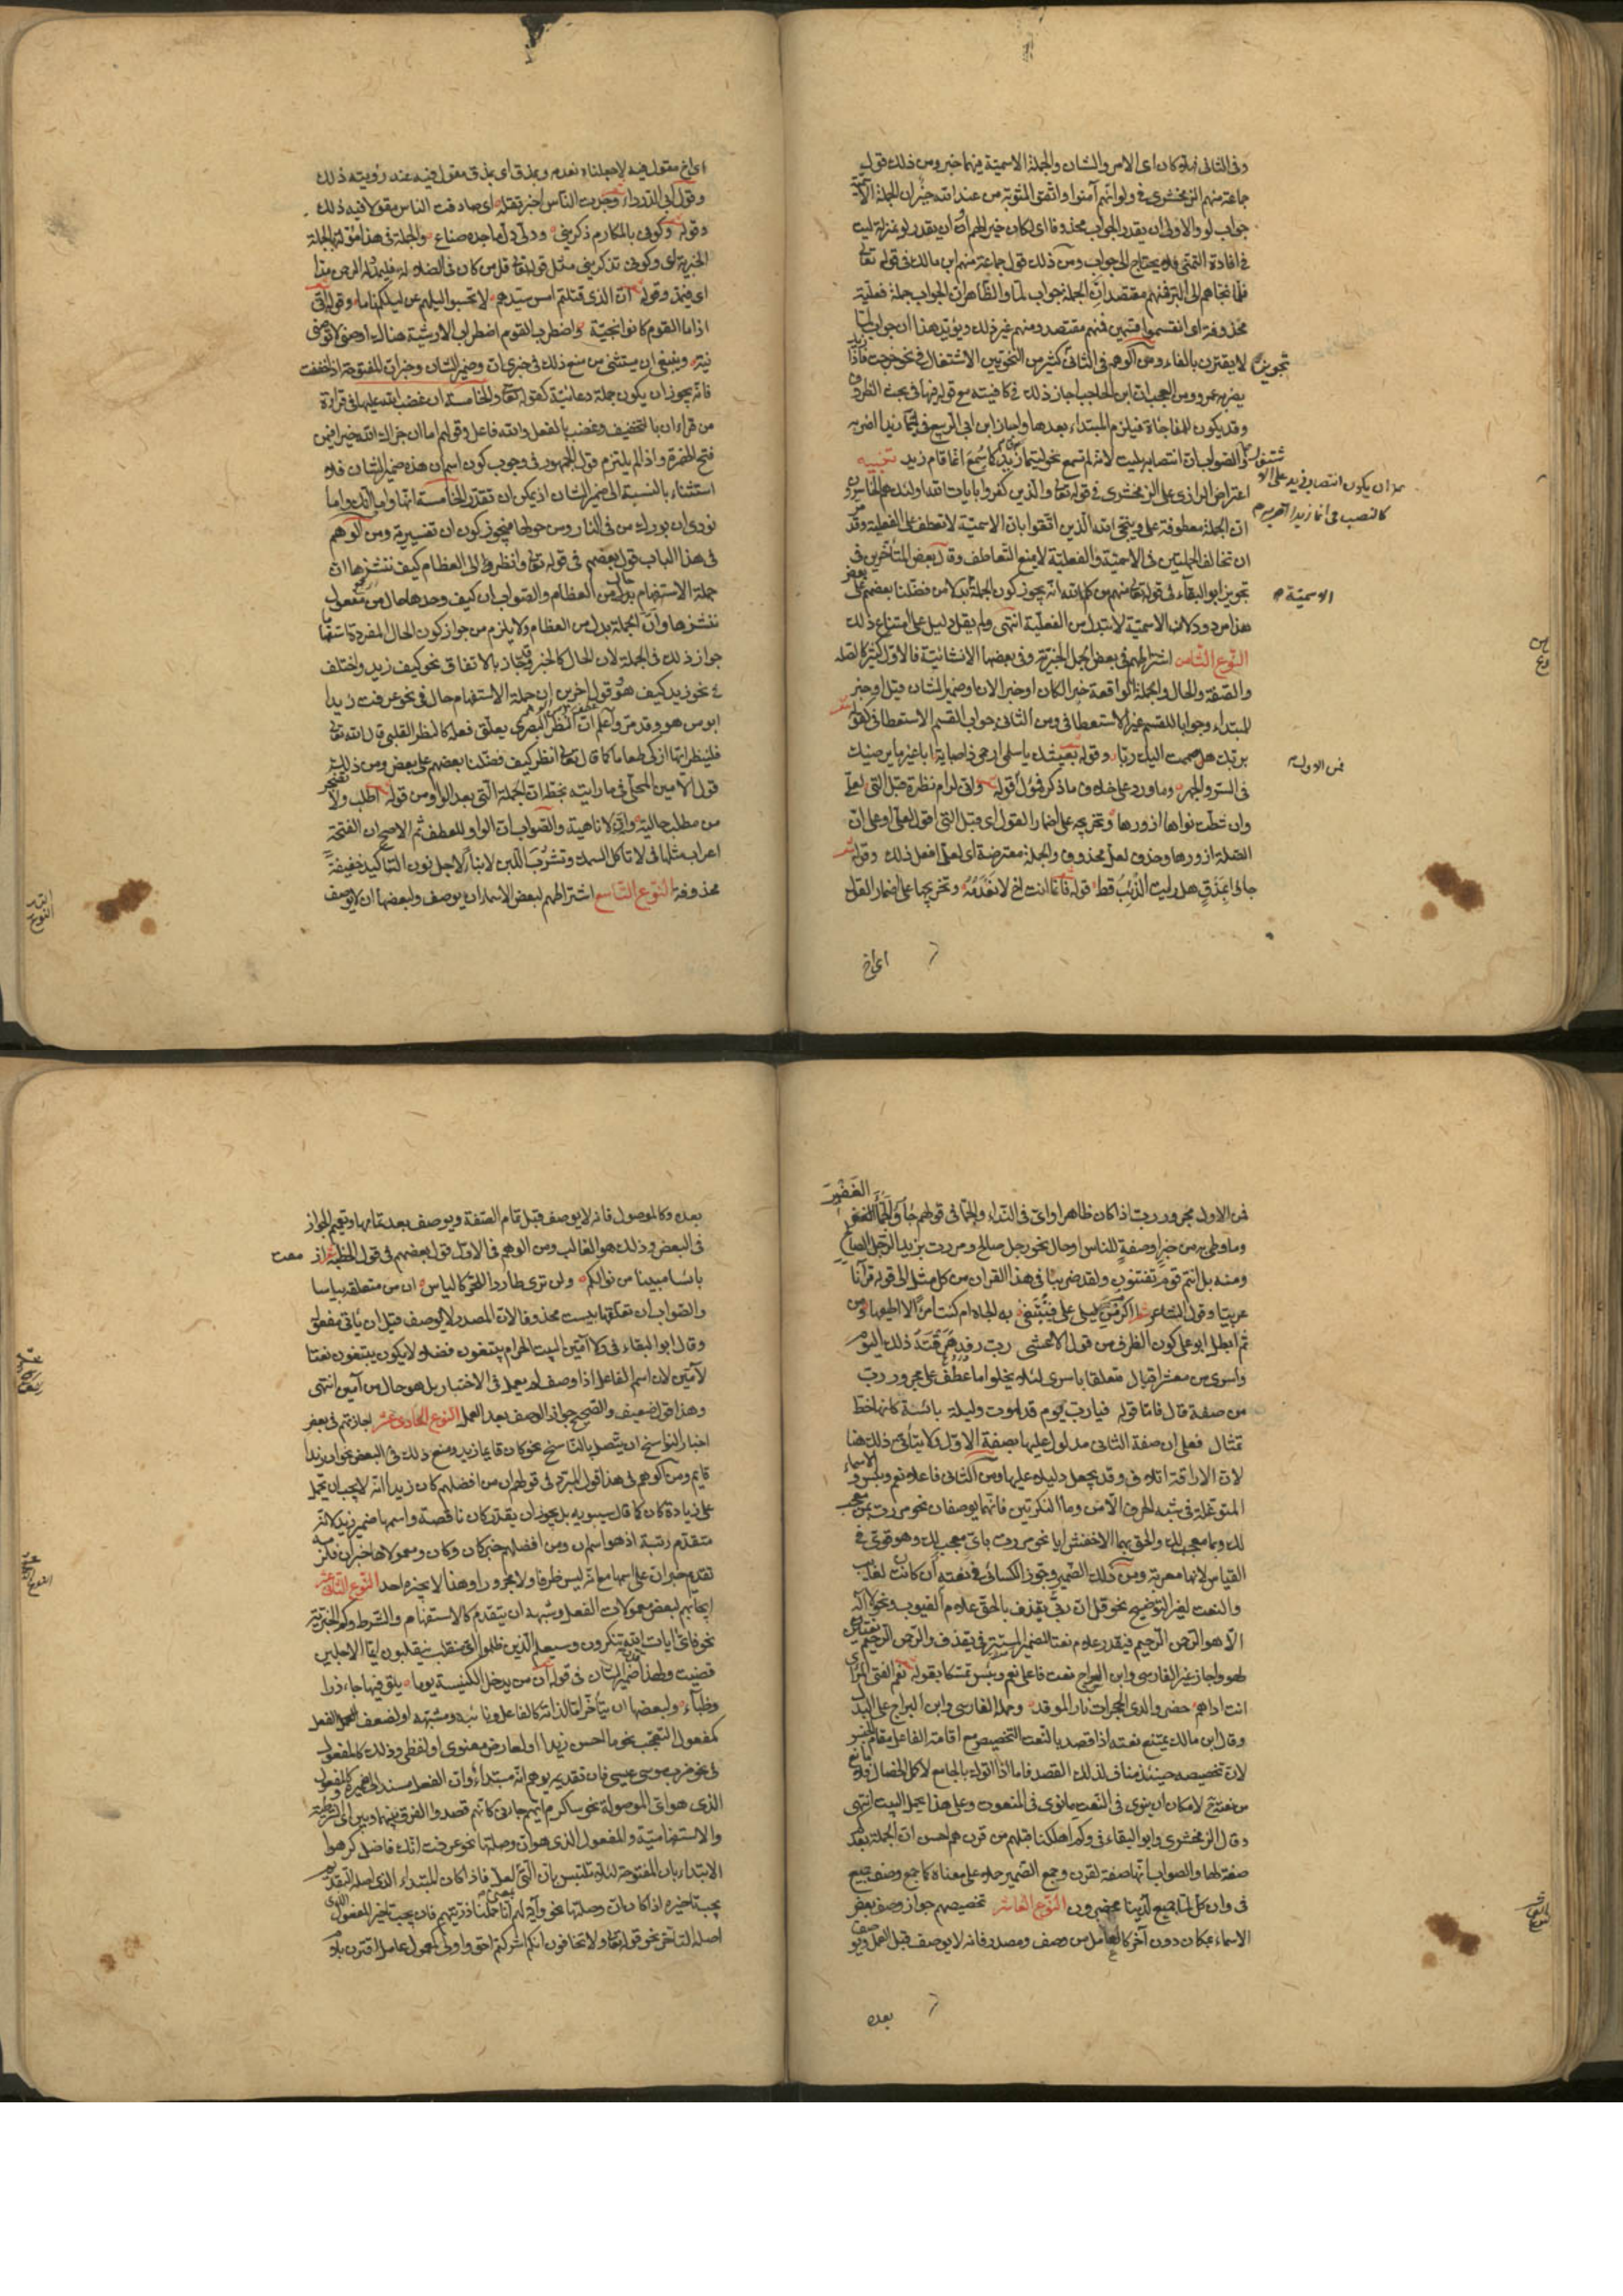 وفى الثانى فله كان اى الامر والشان والجملة الاسمية فيهما خبر ومن ذلك قول
جماعة منهم الزمخشرى فى ولو انهم آمنوا واتقوا لمثوبة من عند الله خير ان الجملة الاسمية
جواب لو والاولى ان يقدر الجواب محذوفا اى لكان خيرا لهم او ان يقدر لو بمنزلة ليت
فى افادة التمنى فلا يحتاج الى جواب ومن ذلك قول جماعة منهم ابن مالك فى قوله تعالى
فلما نجاهم الى البر فمنهم مقتصد ان الجملة جواب لما والظاهر ان الجواب جملة فعلية
محذوفة اى انقسموا قسمين فمنهم مقتصد ومنهم غير ذلك ويؤيد هذا ان جواب لما
لا يقترن بالفاء ومن الوهم فى الثانى تجويز كثير من النحويين الاشتغال فى نحو خرجت فاذا زيد
يضربه عمرو ومن العجب ان ابن الحاجب اجاز ذلك فى كافيته مع قوله فيها فى بحث الظروف
وقد يكون للمفاجاة فيلزم المبتداء بعدها واجاز ابن ابى الربيع فى ليتما زيدا اضربه
ان يكون انتصاب زيد على الاشتغال كالنصب فى انما زيدا اضربه
والصواب ان انتصابه بليت لانه لم تسمع نحو ليتما قام زيد كما سمع انما قام زيد تنبيه
اعترض الرازى على الزمخشرى فى قوله تعالى والذين كفروا بايات الله اولئك هم الخاسرون
ان الجملة معطوفة على وينجى الله الذين اتقوا بان الاسمية لا تعطف على الفعلية وقد
ان تخالف الجملتين فى الاسمية والفعلية لا يمنع التعاطف وقال بعض المتأخرين فى
تجويز ابو البقاء فى قوله تعالى منهم من كلم الله انه يجوز كون الجملة بدلا من فضلنا بعضهم على بعض
هذا مردود لان الاسمية لا تبدل من الفعلية انتهى ولم يقم دليل على امتناع ذلك
النوع الثامن اشتراطهم فى بعض الجمل الخبرية وفى بعضها الانشائية فالاول كثير كالصلة
والصفة والحال والجملة الواقعة خبرا لكان او خبرا لان او ضمير الشان قيل او خبر
للمبتداء وجوابا للقسم غير الاستعطافى ومن الثانى جواب القسم الاستعطافى كقوله
بربك هل ضممت اليك ريا وقوله بعيشك يا سلمى ارحمى ذا صبابة ابا غير ما يرضيك
فى السر والجهر وما ورد على خلاف ما ذكر فمؤول قوله وانى لرام نظرة قبل التى لعلى
وان شطت نواها ازورها وتخريجه على اضمار القول اى قبل التى اقول لعلى او على ان
الصلة ازورها وحذف لعل محذوف والجملة معترضة اى لعلى افعل ذلك وقوله
جاؤا بمذق هل رايت الذئب قط قوله فانما انت اخ لا نعدمه وتخريجها على اضمار القول
اى اخ
الاسمية
فمن الاول
اى اخ مقول فيه لا جعلنا الله نعدمه وبمذق اى بمذق مقول فيه عند رؤيته ذلك
وقول ابى الدرداء وجدت الناس اخبر تقله اى صادفت الناس مقولا فيه ذلك
وقوله وكونى بالمكارم ذكرينى ودلى دل ماجدة صناع والجملة فى هذا مؤولة بالجملة
الخبرية اى وكونى تذكرينى مثل قوله تعالى قل من كان فى الضلالة فليمدد له الرحمن مدا
اى فيمد وقوله ان الذى قتلتم امس سيدهم لا تحسبوا ليلهم عن ليلكم ناما وقوله انى
اذا ما القوم كانوا انجيه واضطرب القوم اضطراب الارشيه هناك اوصينى ولا توصى
بيه وينبغى ان يستثنى من منع ذلك فى خبرى ان وضمير الشان وخبر ان المفتوحة اذا خففت
فانه يجوز ان يكون جملة دعائية كقوله تعالى والخامسة ان غضب الله عليها فى قراءة
من قرا ان بالتخفيف وغضب بالفعل والله فاعل وقولهم اما ان جزاك الله خيرا فيمن
فتح الهمزة واذا لم يلتزم قول الجمهور فى وجوب كون اسم ان هذه ضمير الشان فلا
استثناء بالنسبة الى ضمير الشان اذ يمكن ان تقدر الخامسة انها واما انك واما
نودى ان بورك من فى النار ومن حولها فيجوز كون ان تفسيرية ومن الوهم
فى هذا الباب قول بعضهم فى قوله تعالى وانظر الى العظام كيف ننشزها ان
جملة الاستفهام حال من العظام والصواب ان كيف وحدها حال من مفعول
ننشزها وان الجملة بدل من العظام ولا يلزم من جواز كون الحال المفردة استفهاما
جواز ذلك فى الجملة لان الحال كالخبر وقد جاز بالاتفاق نحو كيف زيد واختلف
فى نحو زيد كيف هو وقول اخرين ان جملة الاستفهام حال فى نحو عرفت زيدا
ابو من هو وقد مر واعلم ان النظر البصرى يعلق فعله كالنظر القلبى قال الله تعالى
فلينظر ايها ازكى طعاما كما قال تعالى انظر كيف فضلنا بعضهم على بعض ومن ذلك
قول الامين المحلى فى ما رايته بخطه ان الجملة التى بعد الواو من قوله اطلب ولا تضجر
من مطلب حالية وان لا ناهية والصواب ان الواو للعطف ثم الاصح ان الفتحة
اعراب مثلها فى لا تاكل السمك وتشرب اللبن لا بناء لاجل نون التاكيد خفيفة
محذوفة النوع التاسع اشتراطهم لبعض الاسماء ان يوصف ولبعضها ان لا يوصف
فمن الاول مجرور رب اذا كان ظاهرا واى فى النداء والجماء فى قولهم جاؤا الجماء الغفير
وما وطىء به من خبر او صفة للناس او حال نحو رجل صالح ومررت بزيد الرجل الصالح
ومنه بل انتم قوم تفتنون ولقد ضربنا فى هذا القران من كل مثل الى قوله قرآنا
عربيا وقول الشاعر اكرم من ليلى على فتبتغى به الجاه ام كنت امرأ لا اطيعها ومن
ثم ابطل ابو على كون الظرف من قول الاعشى رب رفد هرقته ذلك اليوم
واسرى من معشر اقيال متعلقا باسرى لئلا يخلوا ما عطف على مجرور رب
من صفة قال فاما قوله فيا رب يوم قد لهوت وليلة بانسة كانها خط
تمثال فعلى ان صفة الثانى مدلول عليها بصفة الاول ولا يتأتى ذلك هنا
لان الاراقة اتلاف وقد يجعل دليلا عليها ومن الثانى فاعلا نعم وبئس والاسماء
المتوغلة فى شبه الحرف الا من وما النكرتين فانهما يوصفان نحو مررت بمن معجب
لك وبما معجب لك والحق بهما الاخفش ايا نحو مررت باى معجب لك وهو قوى فى
القياس لانها معربة ومن ذلك الضمير وجوز الكسائى نعته ان كان لغائب
والنعت لغير التوضيح نحو قل ان ربى يقذف بالحق علام الغيوب ونحو لا اله
الا هو الرحمن الرحيم فيقدر علام نعتا للضمير المستتر فى يقذف والرحمن الرحيم نعتين
لهو واجاز غير الفارسى وابن السراج نعت فاعلى نعم وبئس تمسكا بقوله نعم الفتى المرى
انت اذا هم حضروا لدى الحجرات نار الموقد وحمله الفارسى وابن السراج على البدل
وقال ابن مالك يمتنع نعته اذا قصد بالنعت التخصيص مع اقامة الفاعل مقام الجنس
لان تخصيصه حينئذ مناف لذلك القصد فاما اذا تؤول بالجامع لاكمل الخصال فلا مانع
من نعته لامكان ان ينوى فى النعت ما نوى فى المنعوت وعلى هذا يحمل البيت انتهى
وقال الزمخشرى وابو البقاء فى وكم اهلكنا قبلهم من قرن هم احسن ان الجملة بعد كم
صفة لها والصواب انها صفة لقرن وجمع الضمير حملا على معناه كما جمع وصف جميع
فى وان كل لما جميع لدينا محضرون النوع العاشر تخصيصهم جواز وصف بعض
الاسماء بمكان دون آخر كالعامل من وصف ومصدر فانه لا يوصف قبل العمل ويوصف
بعده
بعده وكالموصول فانه لا يوصف قبل تمام الصفة ويوصف بعد تمامها وتعميم الجواز
فى البعض وذلك هو الغالب ومن الوهم فى الاول قول بعضهم فى قول الحطيئة ازمعت
يأسا مبينا من نوالكم ولن ترى طاردا للحر كالياس ان من متعلقة بياسا
والصواب ان تعلقها بيئست محذوفا لان المصدر لا يوصف قبل ان يأتى معموله
وقال ابو البقاء فى ولا آمين البيت الحرام يبتغون فضلا لا يكون يبتغون نعتا
لآمين لان اسم الفاعل اذا وصف لم يعمل فى الاختيار بل هو حال من آمين انتهى
وهذا قول ضعيف والصحيح جواز الوصف بعد العمل النوع الحادى عشر اجازتهم فى بعض
اخبار النواسخ ان يتصل بالناسخ نحو كان قايما زيد ومنع ذلك فى البعض نحو ان زيدا
قايم ومن الوهم فى هذا قول المبرد فى قولهم ان من افضلهم كان زيدا انه لا يجب ان يحمل
على زيادة كان كما قال سيبويه بل يجوز ان يقدر كان ناقصة واسمها ضمير زيد لانه
متقدم رتبة اذ هو اسم ان ومن افضلهم خبر كان وكان ومعمولاها خبر ان فلزمه
تقديم خبر ان على اسمها مع انه ليس ظرفا ولا مجرورا وهذا لا يجيزه احد النوع الثانى عشر
ايجابهم لبعض معمولات الفعل وشبهه ان يتقدم كالاستفهام والشرط وكم الخبرية
نحو فاى ايات الله تنكرون وسيعلم الذين ظلموا اى منقلب ينقلبون ايما الاجلين
قضيت ولهذا قدر ضمير الشان فى قوله ان من يدخل الكنيسة يوما يلق فيها جاءذرا
وظباء ولبعضها ان يتأخر اما لذاته كالفاعل ونائبه ومشبهه او لضعف الفعل
كمفعول التعجب نحو ما احسن زيدا او لعارض معنوى او لفظى وذلك كالمفعول
فى نحو ضرب موسى عيسى فان تقديمه يوهم انه مبتداء وان الفعل مسند الى ضميره وكالمفعول
الذى هو اى الموصولة نحو ساكرم ايهم جاءنى كانهم قصدوا الفرق بينها وبين اى الشرطية
والاستفهامية والمفعول الذى هو ان وصلتها نحو عرفت انك فاضل كرهوا
الابتداء بان المفتوحة لئلا تلتبس بان التى بمعنى لعل فاذا كان المبتداء الذى اصله التقديم
يجب تاخيره اذا كان ان وصلتها نحو وآية لهم انا حملنا ذريتهم فان يجب تاخير المفعول الذى
اصله التاخر نحو قوله تعالى ولا تخافون انكم اشركتم احق واولى وكمعمول عامل اقترن بلام